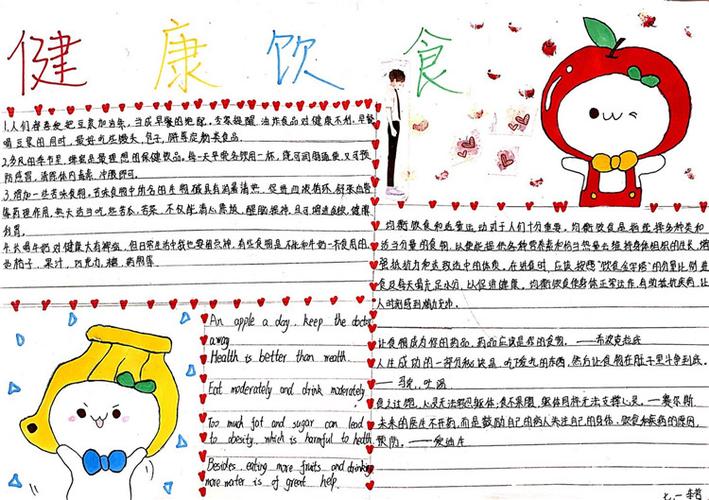 健康饮食
1.人们喜爱把豆浆加油条,当成早餐的绝配,
喝豆浆的同时,最好吃点馒头,包子,
2.多风的季节里,蜂蜜是最理想的保健饮品,每天早晚各饮用一杯,既可润肠通便又可预
防感冒,清除体内毒素
3.增加一些苦味食物,苦味食物中所含的生物碱具有消暑清热,促进血液循环,舒张血管
等药理作用,热天适当吃些苦瓜,苦菜,不仅能清心除烦,醒脑提神,且可增进食欲,健脾
利胃。
4.长喝牛奶对健康大有裨益,但日常生活中我也要留点神,有些食物是不能和牛奶一不食用的
果汁,巧克力,糖
均衡饮食和适量运动对于人们十分重要。均衡饮食是指选择多种类和
适当分量的食物,以便能提供各种营养素和恰当热量去维持身体组织的生长,增
强抵抗力和达致适中的体质。在进食时,应该按照“饮食金字塔”的分量比例进
食及每天喝充足水分,以促进健康。均衡饮食使身体正常运作,有助抵抗疾病,让
人时刻感到精力充沛。
让食物成为你的药品,药品应该是你的食物。——希波克拉底
人生成功的一部分秘诀是,吃下爱吃的东西,然后让食物在肚子里斗争到底。
——马克·吐温
食不果腹,躯体同样无法支撑心灵。
未来的医生不开药,而是鼓励自己的病人关注自己的身体、饮食和疾病的原因、
预防。——爱迪生
An apple a day, keep the doctor
away
Health is better than wealth.
Eat moderately and drink moderately
Too much fat and sugar can lead
to obesity, which is harmful to health
Besides, eating more fruits and drinking
more water is of great help.